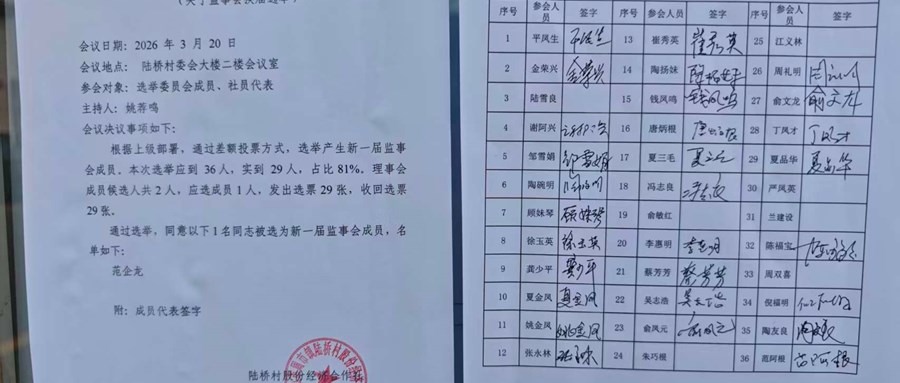 （关于监事会换届选举）
会议日期：2026 年 3 月 20日
会议地点： 陆桥村委会大楼二楼会议室
参会对象：选举委员会成员、社员代表
主持人：姚荐鸣
会议决议事项如下：
根据上级部署，通过差额投票方式，选举产生新一届监事
会成员。本次选举应到 36人，实到 29人，占比 81%。理事会
成员候选人共 2人，应选成员 1人，发出选票 29张，收回选票
29张。
通过选举，同意以下 1名同志被选为新一届监事会成员，名
单如下：
范企龙
附：成员代表签字
陆桥村股份经济合作社
序号 参会人员 签字 序号 参会人员 签字 序号 参会人员 签字
1 平凤生 13 崔秀英 崔秀英 25 江义林
2 金荣兴 金荣兴 14 陶扬妹 26 周礼明
3 陆雪良 15 钱凤鸣 钱凤鸣 27 俞文龙 俞文龙
4 谢阿兴 16 唐炳根 28 丁凤才 丁凤才
5 邹雪娟 邹雪娟 17 夏三毛 29 夏品华 夏品华
6 陶碗明 18 冯志良 30 严凤英
7 顾妹琴 顾妹琴 19 俞敏红 31 兰建设
8 徐玉英 徐玉英 20 李惠明 32 陈福宝
9 龚少平 21 蔡芳芳 蔡芳芳 33 周双喜
10 夏金凤 夏金凤 22 吴志浩 吴志浩 34 倪福明
11 姚金凤 姚金凤 23 俞凤元 35 陶友良
12 张永林 24 朱巧根 36 范阿根